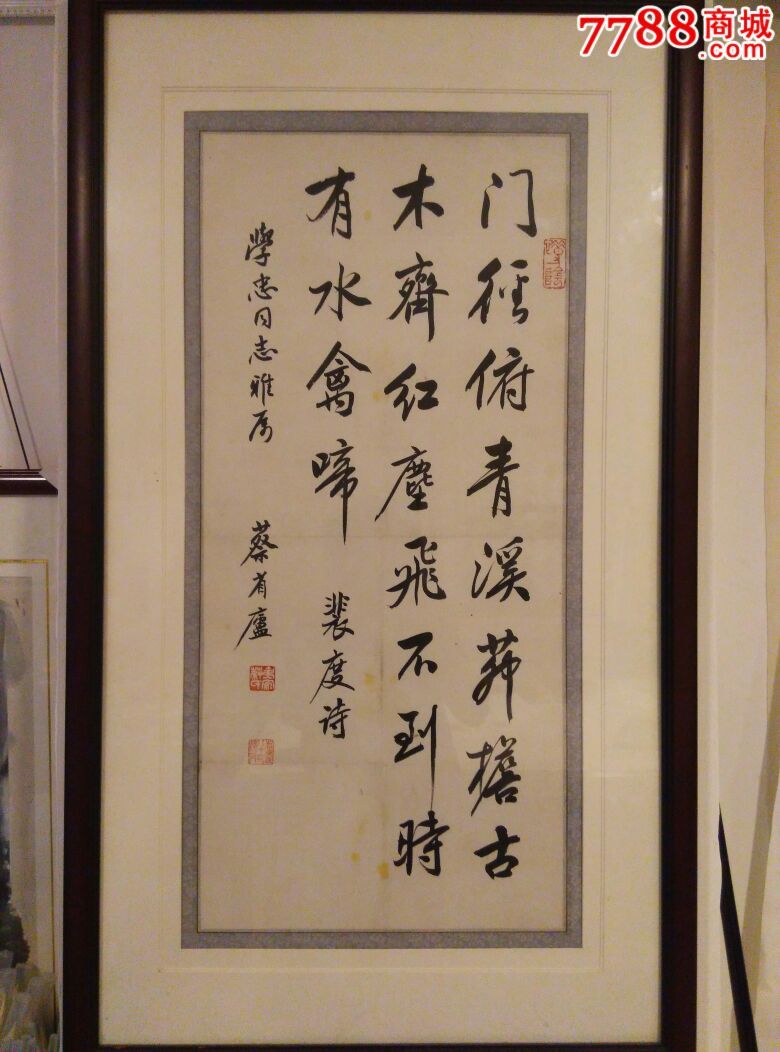 7788商城
.com
门径俯青溪茆檐古
木齊红塵飛不到時
有水禽啼
裴度诗
學忠同志雅属
蔡省廬